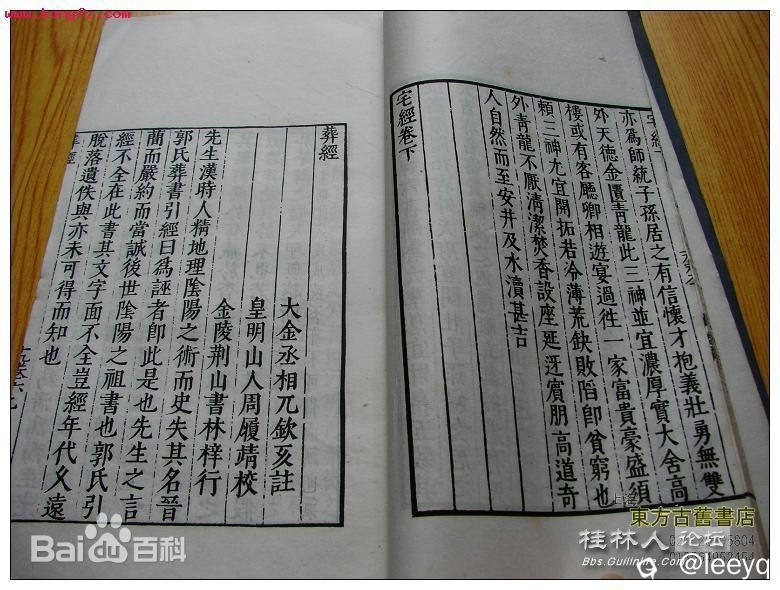 宅經
亦爲師統子孫居之有信懷才抱義壯勇無雙
外天德金匱青龍此三神並宜濃厚實大舍高
樓或有客廳卿相遊宴過徃一家富貴豪盛須
頼三神尤宜開拓若冷薄荒缺敗陷卽貧窮也
外青龍不厭清潔焚香設座延迓賓朋高道奇
人自然而至安井及水瀆甚吉
宅經卷下
葬經
大金丞相兀欽亥註
皇明山人周履靖校
金陵荆山書林梓行
先生漢時人精地理陰陽之術而史失其名晉
郭氏葬書引經曰爲誣者卽此是也先生之言
簡而嚴約而當誠後世陰陽之祖書也郭氏引
經不全在此書其文字面不全豈經年代久遠
脫落遺佚與亦未可得而知也
葬經
www.kongfz.com
Bai du 百科
東方古舊書店
桂林人论坛
Bbs.Guilinlife.Com
@leeyq